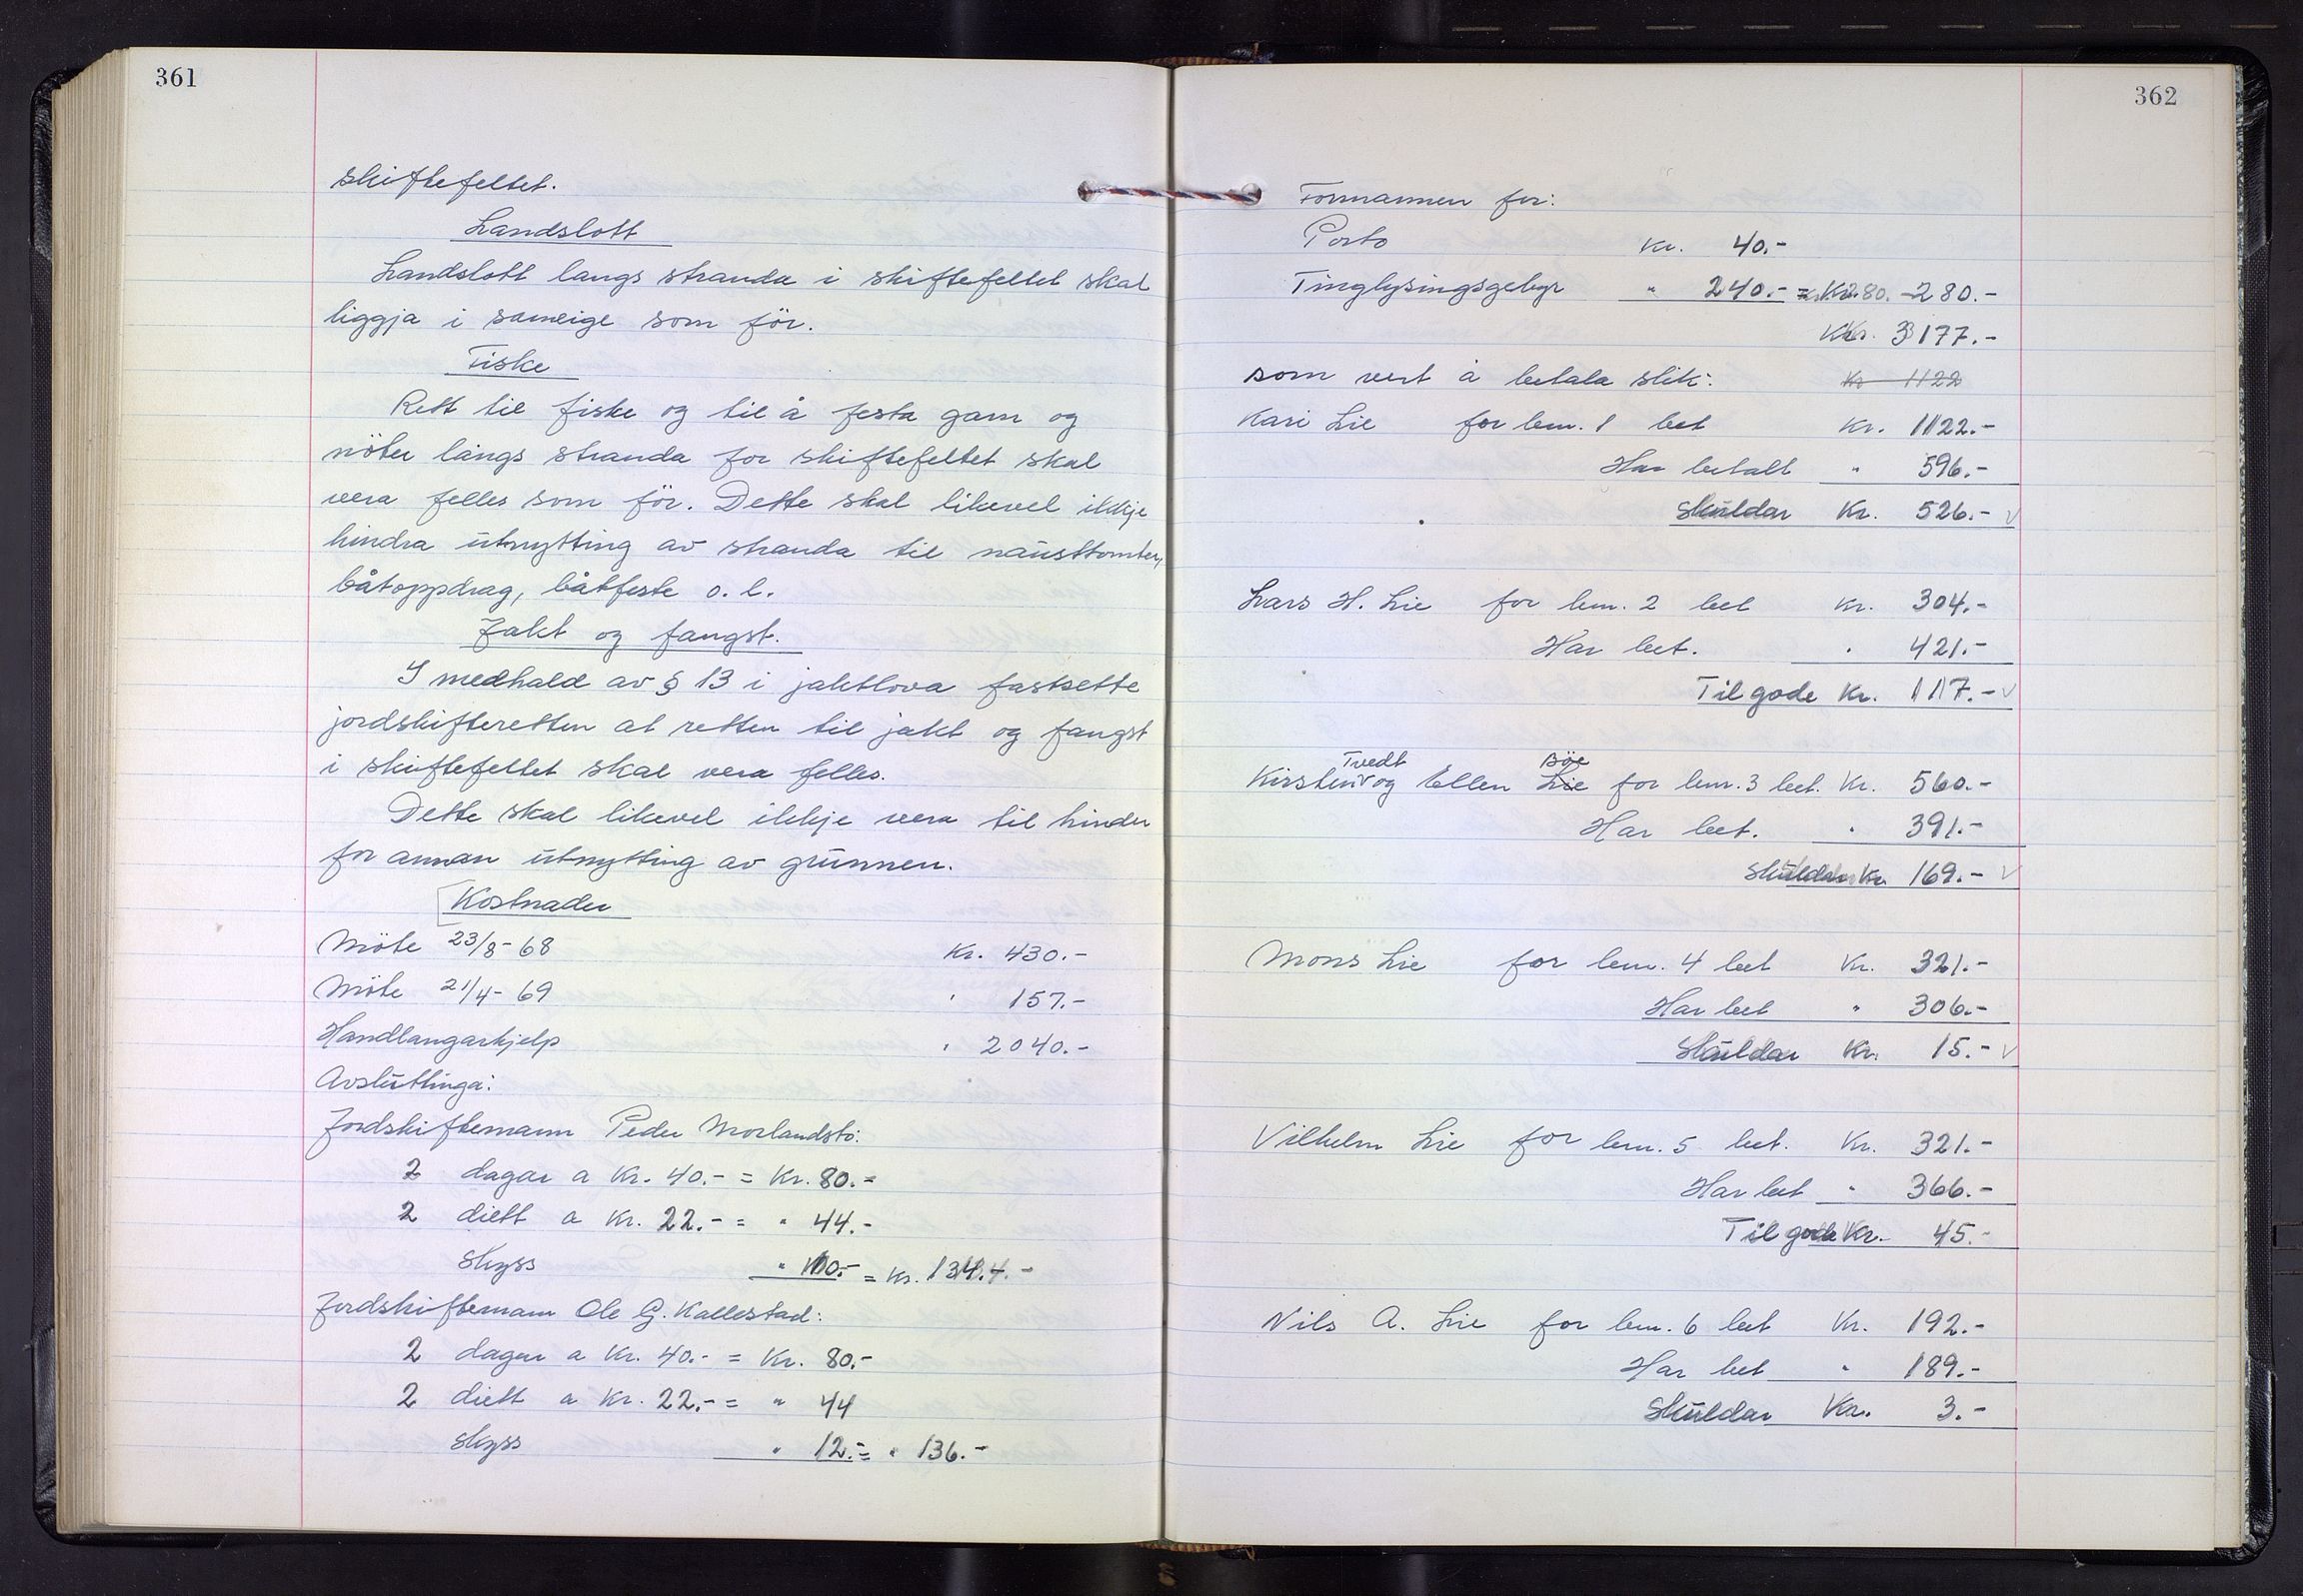 361
skiftefeltet.
Landslott
Landslott langs stranda i skiftefeltet skal
liggja i sameige som för.
Fiske
Rett til fiske og til å festa garn og
nöter langs stranda for skiftefeltet skal
vera felles som för. Dette skal likevel ikkje
hindra utnytting av stranda til nausttomter,
båtoppdrag, båtfeste o. l.
Jakt og fangst.
I medhald av § 13 i jaktlova fastsette
jordskifteretten at retten til jakt og fangst
i skiftefeltet skal vera felles.
Dette skal likevel ikkje vera til hinder
for annan utnytting av grunnen.
Kostnader
Möte 23/8-68 Kr. 430.-
Möte 21/4-69 " 157.-
Handlangarhjelp " 2040.-
Avsluttinga:
Jordskiftemann Peder Morlandstö:
2 dagar a Kr. 40.- = Kr. 80.-
2 diett a Kr. 22.- = " 44.-
Skyss " 10.- = Kr. 134.-
Jordskiftemann Ole G. Kallestad:
2 dagar a Kr. 40.- = Kr. 80.-
2 diett a Kr. 22.- = " 44
Skyss " 12.- = " 136.-
362
Formannen for:
Porto Kr. 40.-
Tinglysingsgebyr " 240.- = Kr. 280.-
Kr. 3177.-
som vert å betala slik: Kr 1122
Kari Lie for bnr. 1 bet Kr. 1122.-
Har betalt " 596.-
Skuldar Kr. 526.- √
Lars H. Lie for bnr. 2 bet Kr. 304.-
Har bet. " 421.-
Til gode Kr. 117.- √
Tvedt Böe
Kirsten √ og Ellen Lie for bnr. 3 bet. Kr. 560.-
Har bet. " 391.-
Skuldar Kr 169.- √
Mons Lie for bnr. 4 bet Kr. 321.-
Har bet " 306.-
Skuldar Kr. 15.- √
Vilhelm Lie for bnr. 5 bet. Kr. 321.-
Har bet " 366.-
Til gode Kr. 45.-
Nils A. Lie for bnr. 6 bet Kr. 192.-
Har bet " 189.-
Skuldar Kr. 3.-